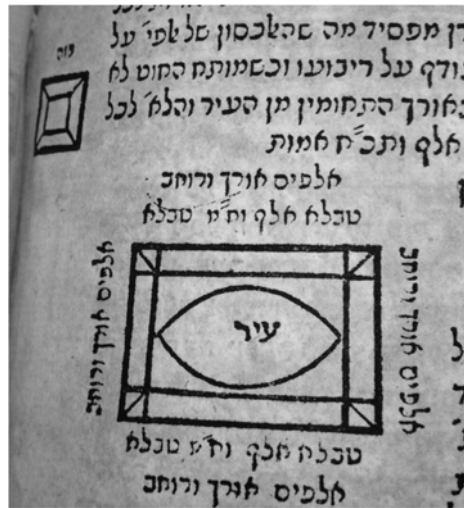 מפסיד מה שהאלכסון של אפי' על
על ריבועו וכשמותח החוט לא
באורך התחומין מן העיר והלא' לכל
אלף ותכ״ח אמות
אלפים אורך ורוחב
טבלא אלף טבלא
אלפים אורך ורוחב
עיר
אלפים אורך ורוחב
טבלא אלף טבלא
אלפים אורך ורוחב